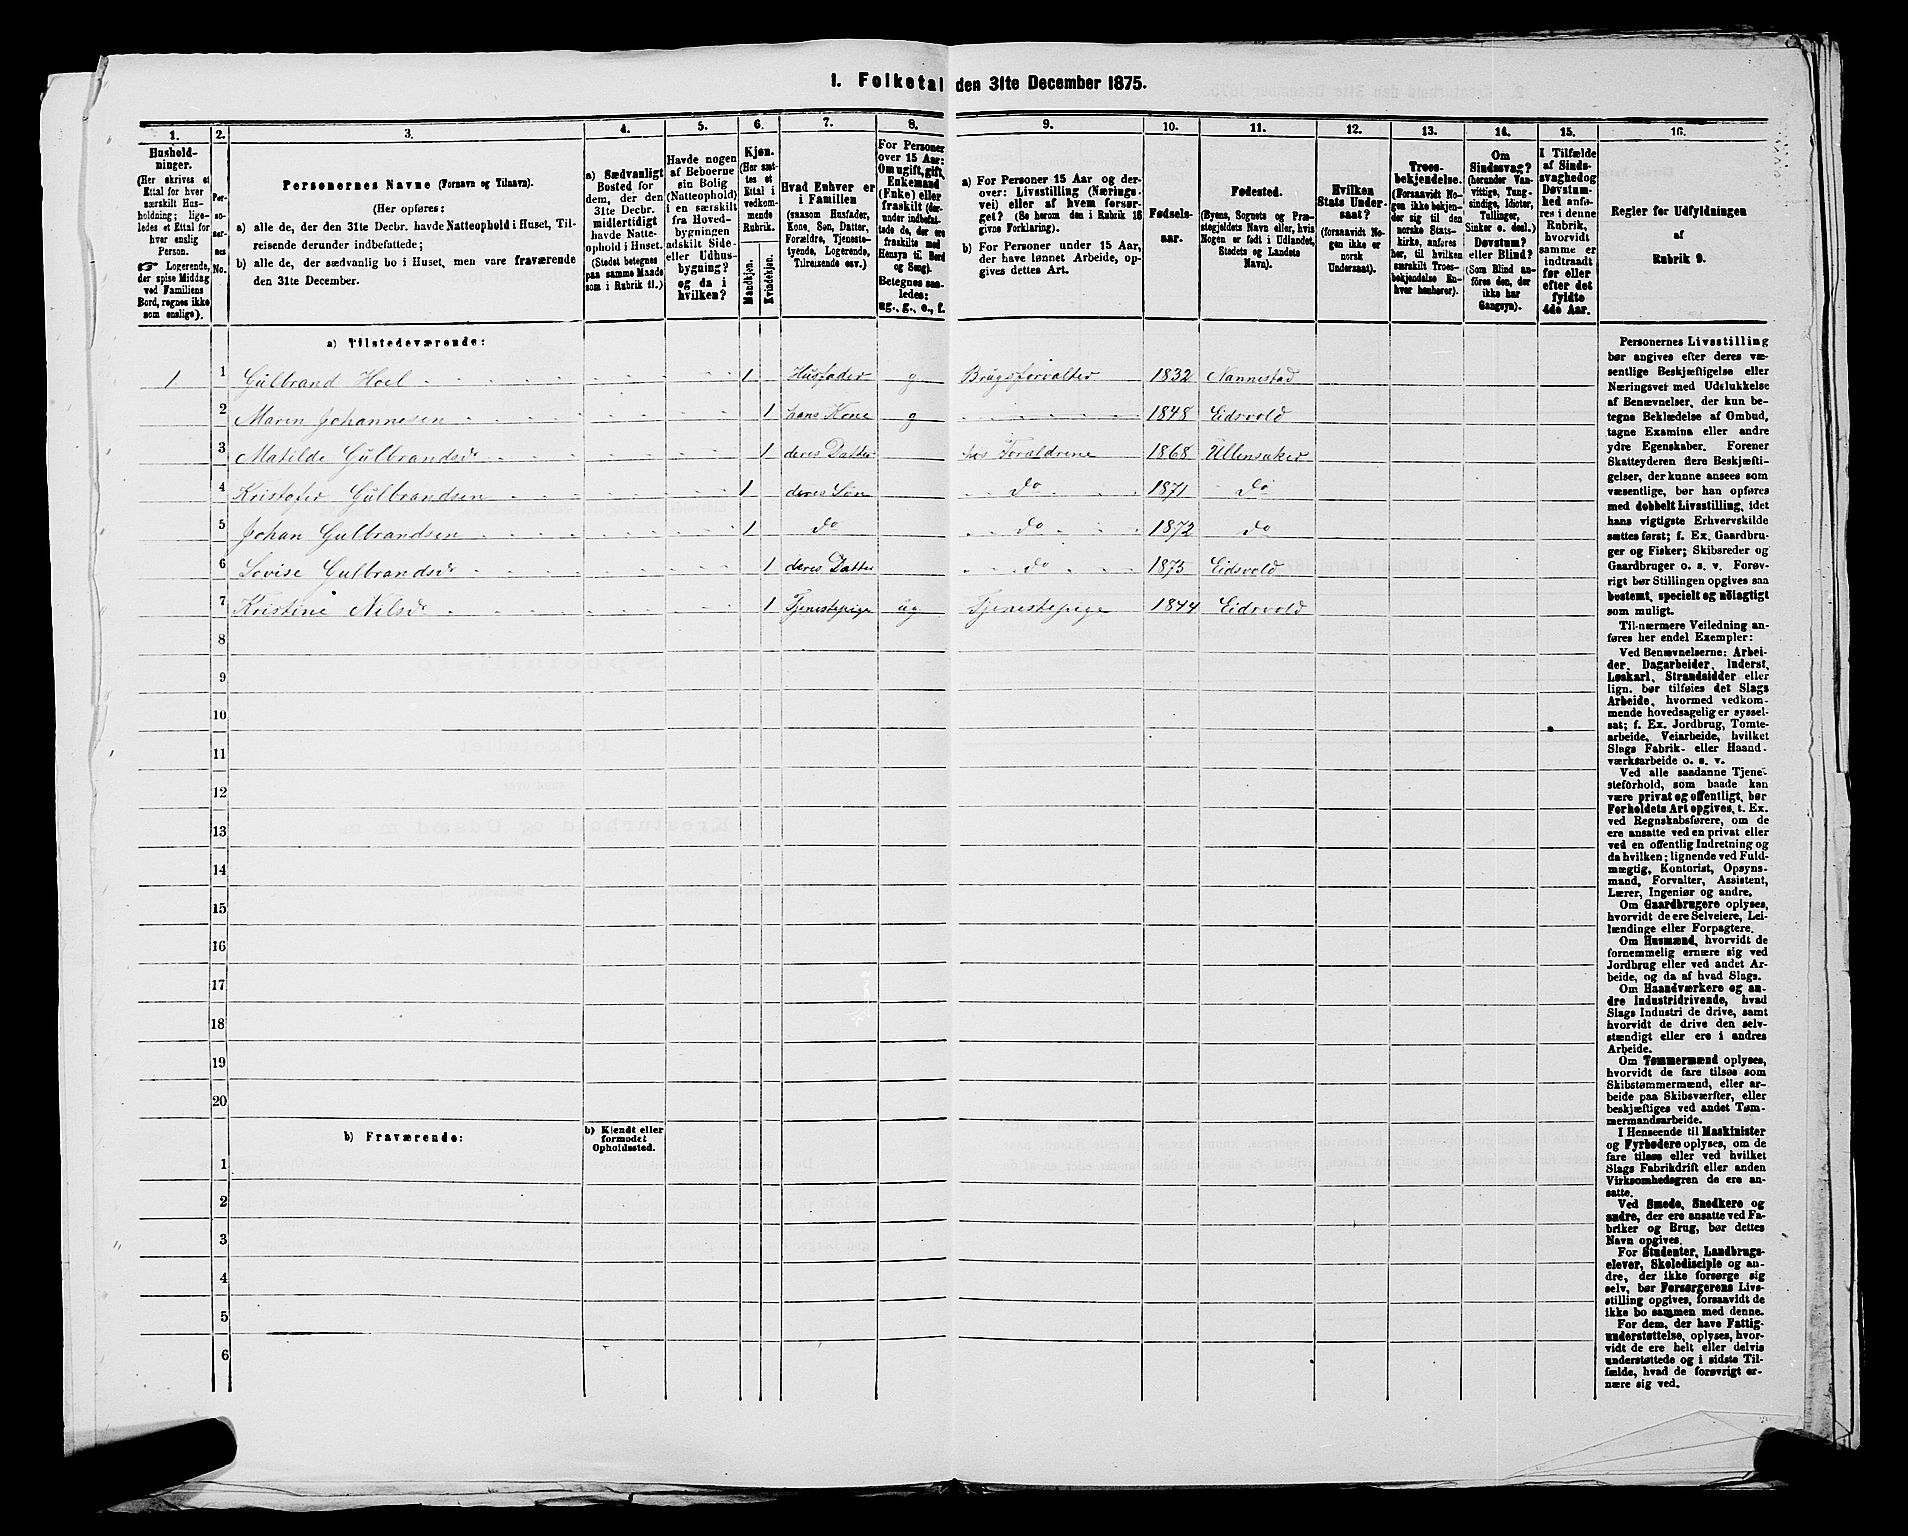 1. Folketal den 31te December 1875.
1. 2. 3. 4. 5. 6. 7. 8. 9. 10. 11. 12. 13. 14. 15. 16.
Husholdninger.
(Her skrives et
Ettal for hver
særskilt Husholdning; ligeledes
et Ettal for
hver enslig
Person.
☞ Logerende,
der spise Middag
ved Familiens
Bord, regnes ikke
som enslige).
Personernes No.
Personernes Navne (Fornavn og Tilnavn).
(Her opføres:
a) alle de, der den 31te Decbr. havde Natteophold i Huset, Tilreisende
derunder indbefattede;
b) alle de, der sædvanlig bo i Huset, men vare fraværende
den 31te December.
a) Sædvanligt
Bosted for
dem, der den
31te Decbr.
midlertidigt
havde Natteophold
i Huset.
(Stedet betegnes
paa samme Maade
som i Rubrik 11.)
Havde nogen
af Beboerne
sin Bolig
(Natteophold)
i en særskilt
fra Hovedbygningen
adskilt Side-
eller Udhusbygning?
og da i
hvilken?
Kjøn.
(Her sættes
et
Ettal i
vedkommende
Rubrik.
Mandkjøn.
Kvindekjøn.
Hvad Enhver er
i Familien
(saasom Husfader,
Kone, Søn, Datter,
Forældre, Tjenestetyende,
Logerende,
Tilreisende osv.)
For Personer
over 15 Aar:
Om ugift, gift,
Enkemand
(Enke) eller
fraskilt (derunder
indbefattede
de, der ere
fraskilte med
Hensyn til Bord
og Seng).
Betegnes saaledes:
ug., g., e., f.
a) For Personer 15 Aar og derover:
Livsstilling (Næringsvei)
eller af hvem forsørget?
(Se herom den i Rubrik 16
givne Forklaring).
b) For Personer under 15 Aar,
der have lønnet Arbeide, opgives
dettes Art.
Fødselsaar.
Fødested.
(Byens, Sognets og Præstegjeldets
Navn eller, hvis
Nogen er født i Udlandet,
Stedets og Landets
Navn).
Hvilken
Stats Undersaat?
(forsaavidt Nogen
ikke er
norsk
Undersaat).
Troesbekjendelse.
(Forsaavidt Nogen
ikke bekjender
sig til den
norske Statskirke,
anføres
her, til hvilken
særskilt Troesbekjendelse
Enhver
henhører).
Om
Sindssvag?
(herunder Vanvittige,
Tungsindige,
Idioter,
Tullinger,
Sinker o. desl.)
Døvstum?
eller Blind?
(Som Blind anføres
den, der
ikke har
Gangsyn).
I Tilfælde
af Sindssvaghed
og
Døvstumhed
anføres
i denne
Rubrik,
hvorvidt
samme er
indtraadt
før eller
efter det
fyldte
4de Aar.
Regler for Udfyldningen
af
Rubrik 9.
a) Tilstedeværende:
1 1 Gulbrand Hoel 1 Husfader g Brugsforvalter 1832 Nannestad
2 Maren Johannesen 1 hans Kone g 1848 Eidsvold
3 Matilde Gulbrandsdr 1 deres Datter hos Forældrene 1868 Ullensaker
4 Kristofer Gulbrandsen 1 deres Søn do 1871 do
5 Johan Gulbrandsen 1 do do 1872 do
6 Lovise Gulbrandsdr 1 deres Datter do 1875 Eidsvold
7 Kristine Nilsdr 1 Tjenestepige ug Tjenestepige 1844 Eidsvold
8
9
10
11
12
13
14
15
16
17
18
19
20
b) Fraværende:
b) Kjendt eller
formodet
Opholdssted.
1
2
3
4
5
6
Personernes Livsstilling
bør angives efter deres væsentlige
Beskjæftigelse eller
Næringsvei med Udelukkelse
af Benævnelser, der kun betegne
Beklædelse af Ombud,
tagne Examina eller andre
ydre Egenskaber. Forener
Skatteyderen flere Beskjæftigelser,
der kunne ansees som
væsentlige, bør han opføres
med dobbelt Livsstilling, idet
hans vigtigste Erhvervskilde
sættes først; f. Ex. Gaardbruger
og Fisker; Skibsreder og
Gaardbruger o. s. v. Forøvrigt
bør Stillingen opgives saa
bestemt, specielt og nøiagtigt
som muligt.
Til nærmere Veiledning anføres
her endel Exempler:
Ved Benævnelserne: Arbeider,
Dagarbeider, Inderst,
Løskarl, Strandsidder eller
lign. bør tilføies det Slags
Arbeide, hvormed vedkommende
hovedsagelig er sysselsat;
f. Ex. Jordbrug, Tomtearbeide,
Veiarbeide, hvilket
Slags Fabrik- eller Haandværksarbeide
o. s. v.
Ved alle saadanne Tjenesteforhold,
som baade kan
være privat og offentligt, bør
Forholdets Art opgives, t. Ex.
ved Regnskabsførere, om de
ere ansatte ved en privat eller
ved en offentlig Indretning og
da hvilken; lignende ved Fuldmægtig,
Kontorist, Opsynsmand,
Forvalter, Assistent,
Lærer, Ingeniør og andre.
Om Gaardbrugere oplyses,
hvorvidt de ere Selveiere, Leilændinge
eller Forpagtere.
Om Husmænd, hvorvidt de
fornemmelig ernære sig ved
Jordbrug eller ved andet Arbeide,
og da af hvad Slags.
Om Haandværkere og andre
Industridrivende, hvad
Slags Industri de drive, samt
hvorvidt de drive den selvstændigt
eller ere i andres
Arbeide.
Om Tømmermænd oplyses,
hvorvidt de fare tilsøs som
Skibstømmermænd, eller arbeide
paa Skibsværfter, eller
beskjæftiges ved andet Tømmermandsarbeide.
I Henseende til Maskinister
og Fyrbødere oplyses, om de
fare tilsøs eller ved hvilket
Slags Fabrikdrift eller anden
Virksomhedsgren de ere ansatte.
Ved Smede, Snedkere og
andre, der ere ansatte ved Fabriker
og Brug, bør dettes
Navn opgives.
For Studenter, Landbrugselever,
Skoledisciple og andre,
der ikke forsørge sig
selv, bør Forsørgerens Livsstilling
opgives, forsaavidt de
ikke bo sammen med denne.
For dem, der have Fattigunderstøttelse,
oplyses, hvorvidt
de ere helt eller delvis
understøttede og i sidste Tilfælde,
hvad de forøvrigt ernære
sig ved.